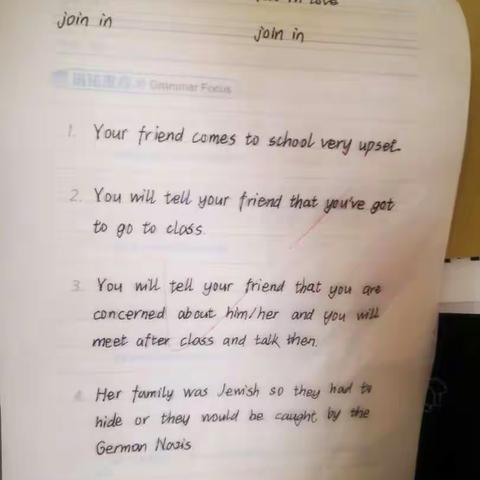 in love
join in
join in
Grammar Focus
1. Your friend comes to school very upset.
2. You will tell your friend that you've got
to go to class.
3. You will tell your friend that you are
concerned about him/her and you will
meet after class and talk then.
4. Her family was Jewish so they had to
hide or they would be caught by the
German Nazis